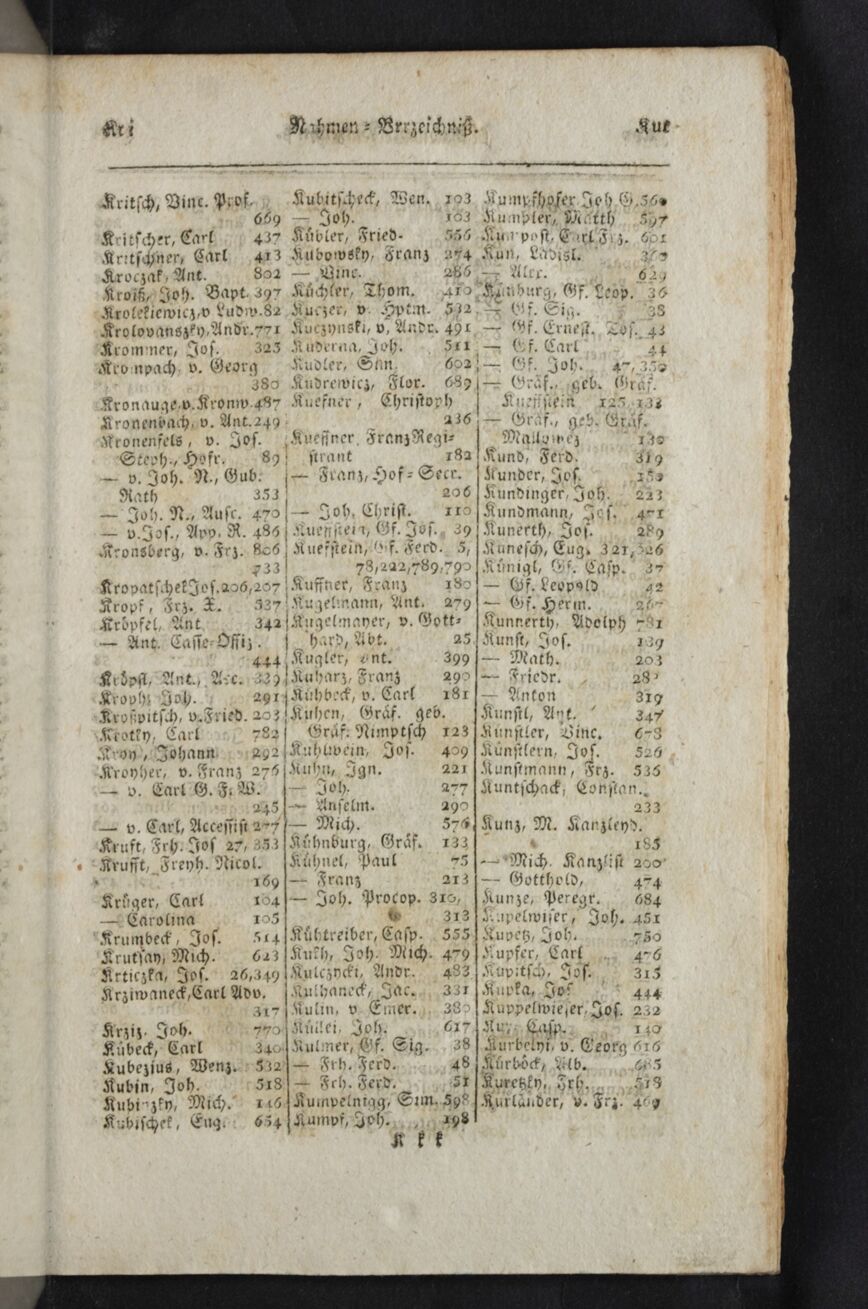 Kri Nahmen-Verzeichniß. Kur
Kritsch, Vinc. Prof.
669
Kritscher, Carl 437
Kritschner, Carl 413
Kroczak, Ant. 802
Kroiß, Joh. Bapt. 397
Krolekiewicz, v Ludw. 82
Krolovanszky, Andr. 771
Krommer, Jos. 325
Krompach, v. Georg
380
Kronauge, v. Kronw. 487
Kronenbach, v. Ant. 249
Kronenfels, v. Jos.
Steph., Hofr. 89
— v. Joh. N., Gub.
Rath 353
— Joh. N., Ausc. 470
— v. Jos., App. R. 486
Kronsberg, v. Frz. 806
733
Kropatschek Jos. 206, 207
Kropf, Frz. X. 537
Kröpfel, Ant. 342
— Ant. Casse-Offiz.
444
Kröpfl, Ant., 339
Kroph, Joh. 291
Kroßpitsch, v. Fried. 203
Krotky, Carl 782
Kroy, Johann 292
Kroyher, v. Franz 276
— v. Carl G. F. W.
245
— v. Carl, Accessist 277
Kruft, Frh. Jos 27, 353
Krufft, Freyh. Nicol.
169
Krüger, Carl 104
— Carolina 105
Krumbeck, Jos. 514
Krutsay, Mich. 623
Krticzka, Jos. 26, 349
Krziwaneck, Carl Adv.
317
Krziz, Joh. 770
Kübeck, Carl 340
Kubezius, Wenz. 532
Kubin, Joh. 518
Kubinzky, Mich. 146
Kubischek, Eug. 654
Kubitscheck, Wen. 103
— Joh. 103
Kübler, Fried. 556
Kubowsky, Franz 274
— Vinc. 286
Küchler, Thom. 410
Kuczer, v. Hptm. 532
Kuczynski, v, Andr. 491
Kuderna, Joh. 511
Kudler, Sim. 602
Kudrewicz, Flor. 689
Kuefner, Christoph
236
Kueffner, Franz Regi-
strant 182
— Franz, Hof-Secr.
206
— Joh. Christ. 110
Kueffstein, Gf. Jos. 39
Kuefstein, Gf. Ferd. 5,
78, 222, 789, 790
Kuffner, Franz 180
Kugelmann, Ant. 279
Kugelmayer, v. Gott-
hard, Abt. 25
Kugler, Ant. 399
Kuharz, Franz 290
Kühbeck, v. Carl 181
Kuhen, Gräf. geb.
Gräf. Nimptsch 123
Kuhlwein, Jos. 409
Kuhn, Ign. 221
— Joh. 277
— Anselm. 290
— Mich. 576
Kühnburg, Gräf. 133
Kühnel, Paul 75
— Franz 213
— Joh. Procop. 310,
313
Kühtreiber, Casp. 555
Kukh, Joh. Mich. 479
Kulczycki, Andr. 483
Kulhaneck, Jac. 331
Kulin, v. Emer. 380
Küllei, Joh. 617
Kulmer, Gf. Sig. 38
— Frh. Ferd. 48
— Frh. Ferd. 51
Kumpelnigg, Sim. 598
Kumpf, Joh. 198
Kumpfhofer Joh G. 360
Kumpler, Matth 597
Kumpost, Carl Frz. 601
Kun, Ladisl. 360
— Alex. 629
Künburg, Gf. Leop. 36
— Gf. Sig. 38
— Gf. Ernest. Jos. 43
— Gf. Carl 44
— Gf. Joh. 47, 350
— Gräf., geb. Gräf.
Kueffstein 125, 133
— Gräf., geb. Gräf.
130
Kund, Ferd. 319
Kunder, Jos.
Kundinger, Joh. 223
Kundmann, Jos. 471
Kunerth, Jos. 289
Kunesch, Eug. 321, 326
Künigl, Gf. Casp. 37
— Gf. Leopold 42
— Gf. Herm. 267
Kunnerth, Adolph 781
Kunst, Jos. 139
— Math. 203
— Friedr.
— Anton 319
Kunstl, Ant. 347
Künstler, Vinc. 673
Künstlern, Jos. 526
Kunstmann, Frz. 536
Kuntschack, Constan.
233
Kunz, M. Kanzleyd.
185
— Mich. Kanzlist 200
— Gotthold, 474
Kunze, Peregr. 684
Kupelwiser, Joh. 451
Kupetz, Joh. 750
Kupfer, Carl 476
Kupitsch, Jos. 315
Kupka, Jos 444
Kuppelwieser, Jos. 232
Casp. 140
Kurbelyi, v. Georg 616
Kürböck, Alb. 685
Kuretzky, Frh. 518
Kurländer, v. Frz. 469
K k k